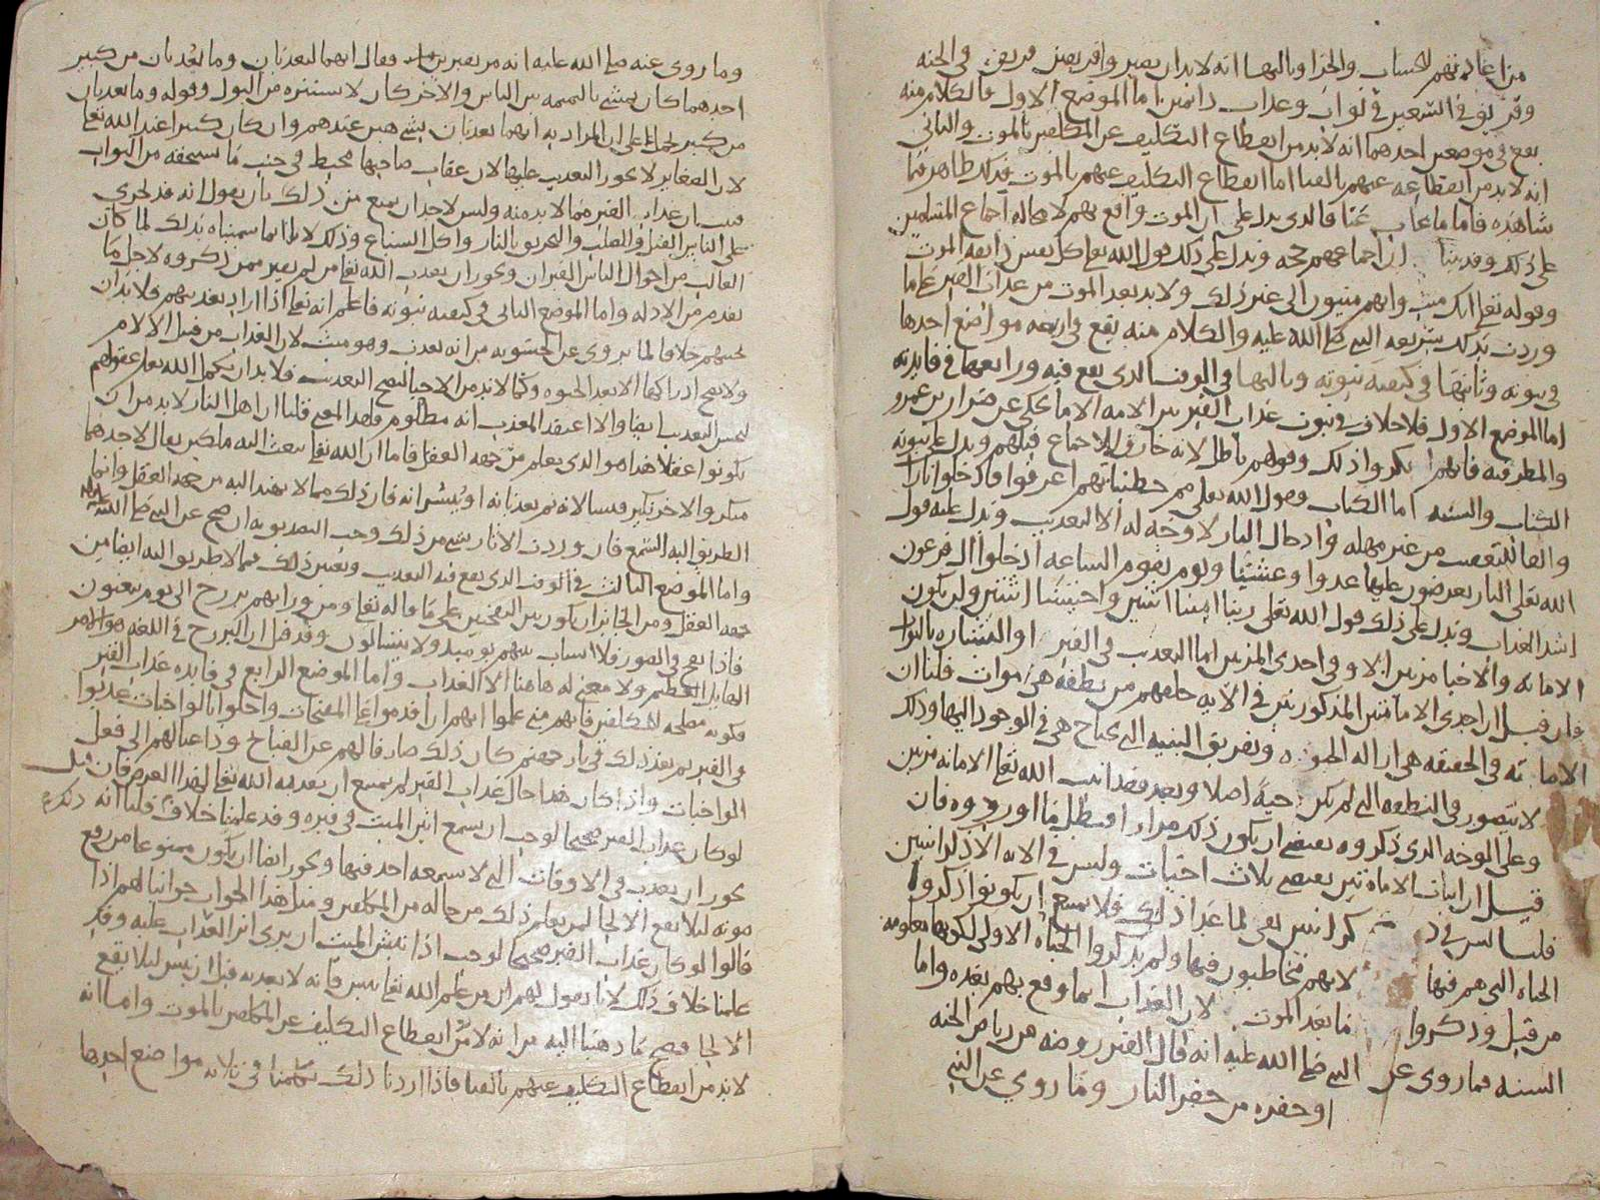 من اعادتهم للحساب والجزا وثالثها انه لا بد ان يصير واقر يقين فريق في الجنه
وفريق في السعير في ثواب وعذاب دائمين اما الموضع الاول فالكلام منه
يقع في موضعين احدهما انه لا بد من انقطاع التكليف عن المكلفين بالموت والثاني
انه لا بد من انقطاعه عنهم بالفنا اما انقطاع التكليف عنهم بالموت فذلك ظاهر فيما
شاهدناه فاما ما غاب عنا فالذي يدل على ان الموت واقع بهم لا محاله اجماع المسلمين
على ذلك وقد بينا ان اجماعهم حجه ويدل على ذلك قول الله تعالى كل نفس ذائقه الموت
وقوله تعالى انك ميت وانهم ميتون الى غير ذلك ولا بد بعد الموت من عذاب القبر على ما
وردت بذلك شريعه النبي صلى الله عليه والكلام منه يقع في اربعه مواضع احدها
في ثبوته وثانيها في كيفيه ثبوته وثالثها في الوقت الذي يقع فيه ورابعها في فايدته
اما الموضع الاول فلا خلاف في ثبوت عذاب القبر بين الامه الا ما يحكى عن ضرار بن عمرو
والمطرفيه فانهم انكروا ذلك وقولهم باطل لانه خارق للاجماع قبلهم ويدل على ثبوته
الكتاب والسنه اما الكتاب فقول الله تعالى مما خطيئاتهم اغرقوا فادخلوا نارا
والفا للتعقيب من غير مهله وادخال النار لا وجه له الا التعذيب ويدل عليه قول
الله تعالى النار يعرضون عليها غدوا وعشيا ويوم تقوم الساعه ادخلوا ال فرعون
اشد العذاب ويدل على ذلك قول الله تعالى ربنا امتنا اثنتين واحييتنا اثنتين ولن يكون
الاماته والاحيا مرتين الا وفي احدى المرتين اما التعذيب في القبر او البشاره بالثواب
فان قيل ان احدى الاماتتين المذكورتين في الايه خلقهم من نطفه هي موات قلنا ان
الاماته في الحقيقه هي ازاله الحيوه وتفريق البنيه التي يحتاج هي في الوجود اليها وذلك
لا يتصور في النطفه التي لم تكن حيه اصلا وبعد فقد اثبت الله تعالى الاماته مرتين
وعلى الوجه الذي ذكروه يقتضي ان يكون ذلك مرارا فبطل ما اوردوه فان
قيل ان اثبات الاماتتين يقتضي ثلاث احيات وليس في الايه الا ذكر اثنتين
قلنا ليس في ذكر اثنتين نفي لما عدا ذلك فلا يمتنع ان يكونوا ذكروا
الحياه التي هم فيها لانهم مخاطبون فيها ولم يذكروا الحياه الاولى لكونها معلومه
من قبل وذكروا ما بعد الموت لان العذاب انما وقع بهم بعده واما
السنه فما روي عن النبي صلى الله عليه انه قال القبر روضه من رياض الجنه
او حفره من حفر النار وما روي عن النبي
وما روي عنه صلى الله عليه انه مر بقبرين فقال انهما ليعذبان وما يعذبان من كبير
احدهما كان يمشي بالنميمه بين الناس والاخر كان لا يستنزه من البول وقوله وما يعذبان
من كبير يحمل على ان المراد به انهما يعذبان بشي هين عندهم وان كان كبيرا عند الله تعالى
لان الصغاير لا يجوز التعذيب عليها لان عقاب صاحبها محبط في جنب ما يستحقه من الثواب
فبان عذاب القبر مما لا بد منه وليس لاحد ان يمنع من ذلك بان يقول انه قد يجري
على الناس القتل والصلب والتحريق بالنار واكل السباع وذلك لانا انما سميناه بذلك لما كان
الغالب من احوال الناس القبران ويجوز ان يعذب الله تعالى من لم يقبر ممن ذكروه لاجل ما
تقدم من الادله واما الموضع الثاني في كيفيه ثبوته فاعلم انه تعالى اذا اراد تعذيبهم فلا بد ان
يحييهم خلافا لما يروى عن الحشويه من انه يعذب وهو ميت لان العذاب من قبيل الالام
ولا يصح ادراكها الا بعد الحيوه وكما لا بد من الاحيا ليصح التعذيب فلا بد ان يكمل الله تعالى عقولهم
ليحسن التعذيب ايضا والا اعتقد المعذب انه مظلوم ولهذا المعنى قلنا ان اهل النار لا بد من ان
يكونوا عقلا هذا هو الذي يعلم من جهه العقل فاما ان الله تعالى يبعث اليه ملكين يقال لاحدهما
منكر والاخر نكير فيسالانه ثم يعذبانه او يبشرانه فان ذلك مما لا يهتدا اليه من جهه العقل وانما
الطريق اليه السمع فان وردت الاثار بشي من ذلك وجب التصديق به ان صح عن النبي صلى الله عليه
واما الموضع الثالث في الوقت الذي يقع فيه التعذيب وتعيين ذلك مما لا طريق اليه ايضا من
جهه العقل ومن الجايز ان يكون بين النفختين على ما قاله تعالى ومن ورائهم برزخ الى يوم يبعثون
فاذا نفخ في الصور فلا انساب بينهم يوميذ ولا يتسالون وقد قيل ان البرزخ في اللغه هو الامر
الهايل العظيم ولا معنى له هاهنا الا العذاب واما الموضع الرابع في فايده عذاب القبر
فكونه مصلحه للمكلفين فانهم متى علموا انهم ان اقدموا على المقبحات واخلوا بالواجبات عذبوا
في القبر ثم بعد ذلك في نار جهنم كان ذلك صارفا لهم عن القبايح وداعيا لهم الى فعل
الواجبات واذا كان هذا حال عذاب القبر لم يمتنع ان يقدمه الله تعالى لهذا الغرض فان قيل
لو كان عذاب القبر صحيحا لوجب ان يسمع انين الميت في قبره وقد علمنا خلاف ذلك قلنا انه
يجوز ان يعذب في الاوقات التي لا يسمعه احد فيها ويجوز ايضا ان يكون ممنوعا من رفع
صوته لئلا يقع الالجا لمن يعلم ذلك من حاله من المكلفين ومثل هذا الجواب جوابنا لهم اذا
قالوا لو كان عذاب القبر صحيحا لوجب اذا نبش الميت ان يرى اثر العذاب عليه وقد
علمنا خلاف ذلك لانا نقول لهم ان من علم الله تعالى نبش فانه لا يعذبه قبل ان ينبش لئلا يقع
الالجا فصح ما ذهبنا اليه من انه لا بد من انقطاع التكليف عن المكلفين بالموت واما انه
لا بد من انقطاع التكليف عنهم بالفنا فاذا اردنا ذلك تكلمنا في ثلاثه مواضع احدها